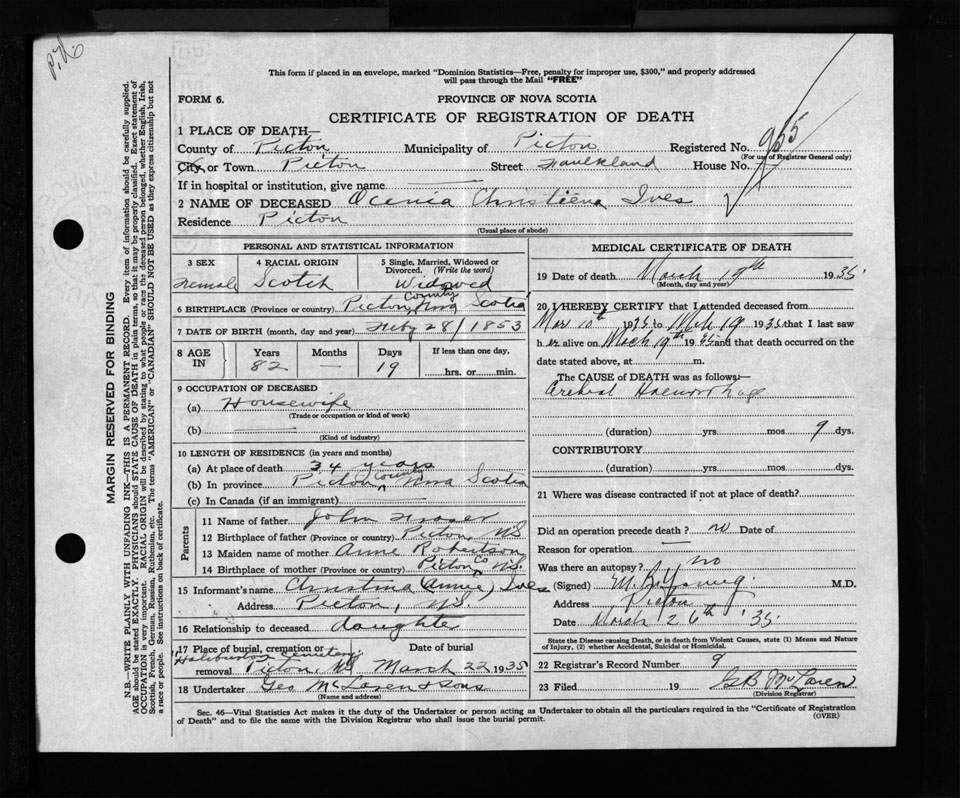 This form if placed in an envelope, marked "Dominion Statistics—Free, penalty for improper use, $300," and properly addressed
will pass through the Mail "FREE"
FORM 6.
PROVINCE OF NOVA SCOTIA
CERTIFICATE OF REGISTRATION OF DEATH
1 PLACE OF DEATH—
County of Pictou Municipality of Pictou Registered No. 955
(For use of Registrar General only)
City or Town Pictou Street Faulkland House No.
If in hospital or institution, give name
2 NAME OF DECEASED Ocenia Christiena Ives
Residence Pictou
(Usual place of abode)
PERSONAL AND STATISTICAL INFORMATION
3 SEX 4 RACIAL ORIGIN 5 Single, Married, Widowed or Divorced. (Write the word)
Female Scotch Widowed
6 BIRTHPLACE (Province or country) Pictou County Nova Scotia
7 DATE OF BIRTH (month, day and year) Feby 28/1853
8 AGE IN Years Months Days If less than one day,
82 — 19 hrs. or min.
9 OCCUPATION OF DECEASED
(a) Housewife
(Trade or occupation or kind of work)
(b)
(Kind of industry)
10 LENGTH OF RESIDENCE (in years and months)
(a) At place of death 34 years
(b) In province Pictou County Nova Scotia
(c) In Canada (if an immigrant)
Parents
11 Name of father John Fraser
12 Birthplace of father (Province or country) Pictou, NS
13 Maiden name of mother Anne Robertson
14 Birthplace of mother (Province or country) Pictou Co NS.
15 Informant's name Christina (Annie) Ives
Address Pictou, NS.
16 Relationship to deceased daughter
17 Place of burial, cremation or removal Date of burial
Haliburton Cemetery.
Pictou, NS March 22 1935
18 Undertaker Geo McLaren & Sons
(Name and address)
MEDICAL CERTIFICATE OF DEATH
19 Date of death March 19th 1935.
(Month, day and year)
20 I HEREBY CERTIFY that I attended deceased from
Mar 10th 1935 to Mch 19 1935 that I last saw
her alive on March 19th 1935 and that death occurred on the
date stated above, at m.
The CAUSE OF DEATH was as follows:
Haemorrhage
(duration) yrs. mos 9 dys.
CONTRIBUTORY
(duration) yrs. mos. dys.
21 Where was disease contracted if not at place of death?
Did an operation precede death? no Date of
Reason for operation
Was there an autopsy? no
(Signed) Young. M.D.
Address Pictou
Date March 26th '35.
State the Disease causing Death, or in death from Violent Causes, state (1) Means and Nature
of Injury, (2) whether Accidental, Suicidal or Homicidal.
22 Registrar's Record Number 9
23 Filed 19 GB McLaren
(Division Registrar)
Sec. 46—Vital Statistics Act makes it the duty of the Undertaker or person acting as Undertaker to obtain all the particulars required in the "Certificate of Registration
of Death" and to file the same with the Division Registrar who shall issue the burial permit.
(OVER)
MARGIN RESERVED FOR BINDING
N.B.—WRITE PLAINLY WITH UNFADING INK—THIS IS A PERMANENT RECORD. Every item of information should be carefully supplied.
AGE should be stated EXACTLY. PHYSICIANS should STATE CAUSE OF DEATH in plain terms, so that it may be properly classified. Exact statement of
OCCUPATION is very important. RACIAL ORIGIN will be described by stating to what people or race the deceased person belonged, whether English, Irish,
Scottish, French, German, Russian, Ruthenian, etc. The terms "AMERICAN" or "CANADIAN" SHOULD NOT BE USED as they express citizenship but not
a race or people. See instructions on back of certificate.